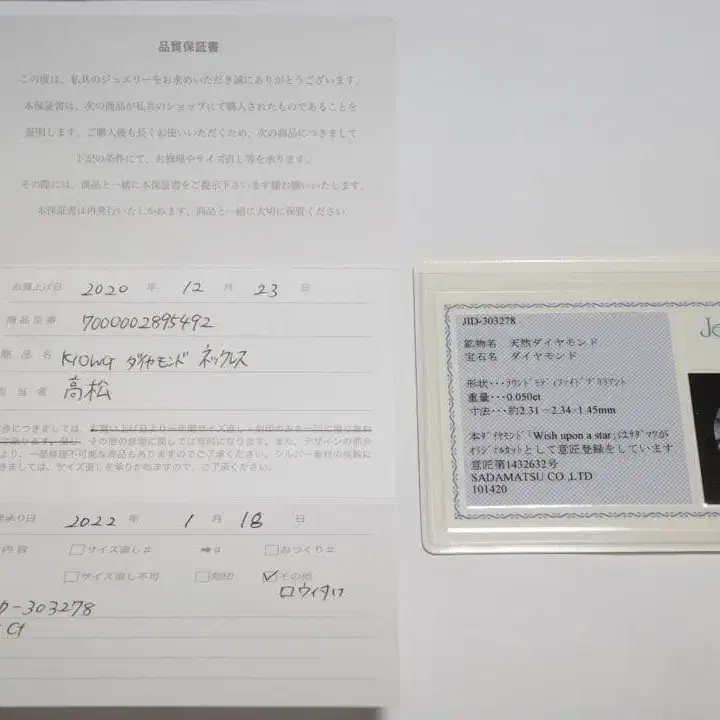 品質保証書
この度は、私共のジュエリーをお求めいただき誠にありがとうございます。
本保証書は、次の商品が私共のショップにて購入されたものであることを
証明します。ご購入後も長くお使いいただくため、次の商品につきまして
下記の条件にて、お修理やサイズ直し等を承ります。
その際には、商品と一緒に本保証書をご提示下さいます様お願いいたします。
本保証書は再発行いたしかねます、商品と一緒に大切に保管ください
お買上げ日 2020 年 12 月 23 日
商品型番 7000002895492
商品名 K10WG ダイヤモンド ネックレス
担当者 高松
お買い上げ日より一年間サイズ直し・刻印のみを一回に限り無料
その他の修理に関しては有料になります。また、デザインの都合
より、一部修理不可能な商品もありますのでご了承ください。シルバー素材の指輪に
きましては、サイズ直しを承りかねますので、ご了承ください。
承り日 2022 年 1 月 18 日
内容 サイズ直し♯ ➡♯ おつくり♯
サイズ直し不可 刻印 その他
ロウイタイ
-303278
ct
JID-303278
鉱物名 : 天然ダイヤモンド
宝石名 : ダイヤモンド
形状・・・ラウンドモディファイドブリリアント
重量・・・0.050ct
寸法・・・約2.31－2.34×1.45mm
本ダイヤモンド「Wish upon a star」はサダマツが
オリジナルカットとして意匠登録をしています
意匠第1432632号
SADAMATSU CO.,LTD
101420
Je